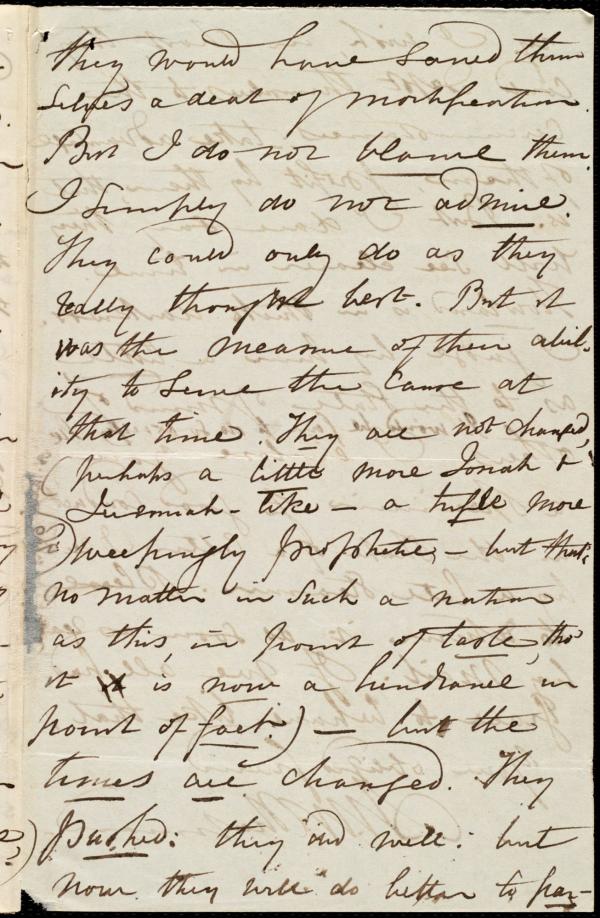 they would have saved them
selves a deal of mortification.
But I do not blame them.
I simply do not admire.
They could only do as they
really thought best. But it
was the measure of their abil-
ity to serve the cause at
that time. They are not changed,
(perhaps a little more Jonah &
Jeremiah-like — a trifle more
weepingly prophetic, — but that's
no matter in such a nation
as this, in point of taste, tho'
it is now a hindrance in
point of fact.) — but the
times are changed. They
pushed: they did well: but
now they will do better to par-